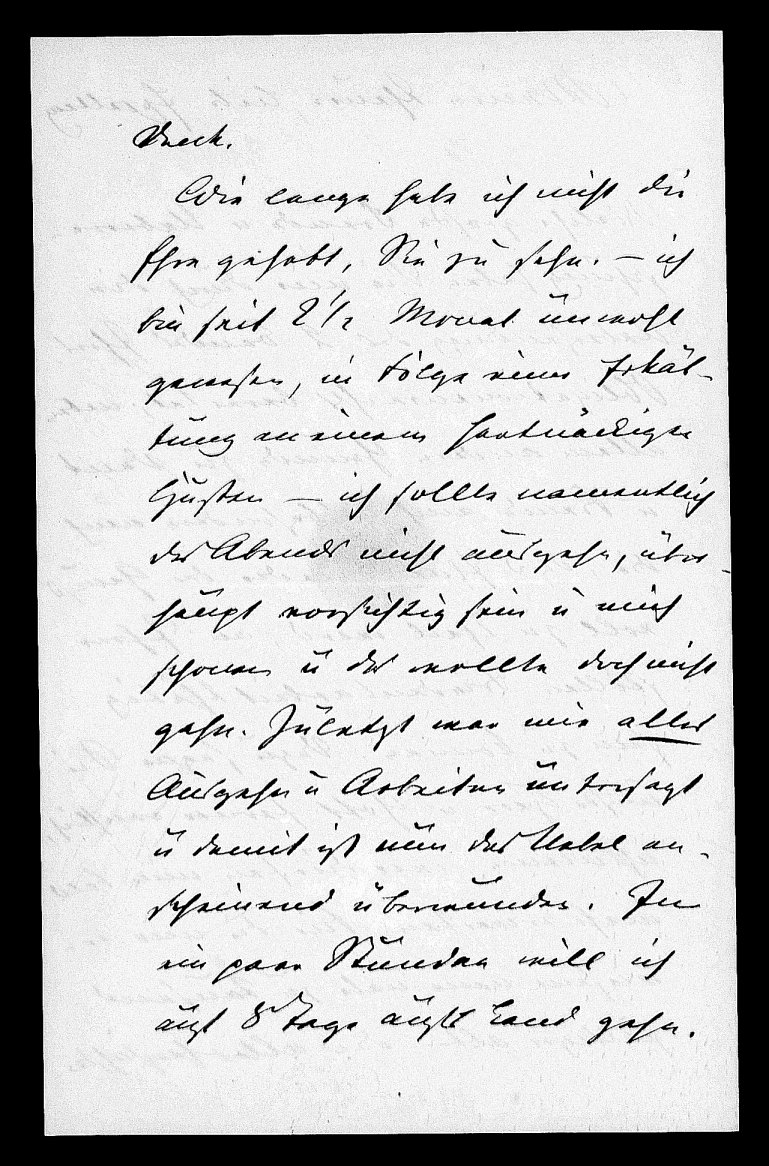 Dreck.
Wie lange habe ich nicht die
Ehre gehabt, Sie zu sehn. – ich
bin seit 2 1/2 Monat unwohl
gewesen, in Folge einer Erkäl-
tung an einem hartnäckigen
Husten – ich sollte namentlich
des Abends nicht ausgehn, über-
haupt vorsichtig sein u mich
schonen u das wollte doch nicht
gehn. Zuletzt war mir alles
Ausgehn u Arbeiten untersagt
u damit ist nun das Uebel an-
scheinend überwunden. In
ein paar Stunden will ich
auf 8 Tage aufs Land gehn.